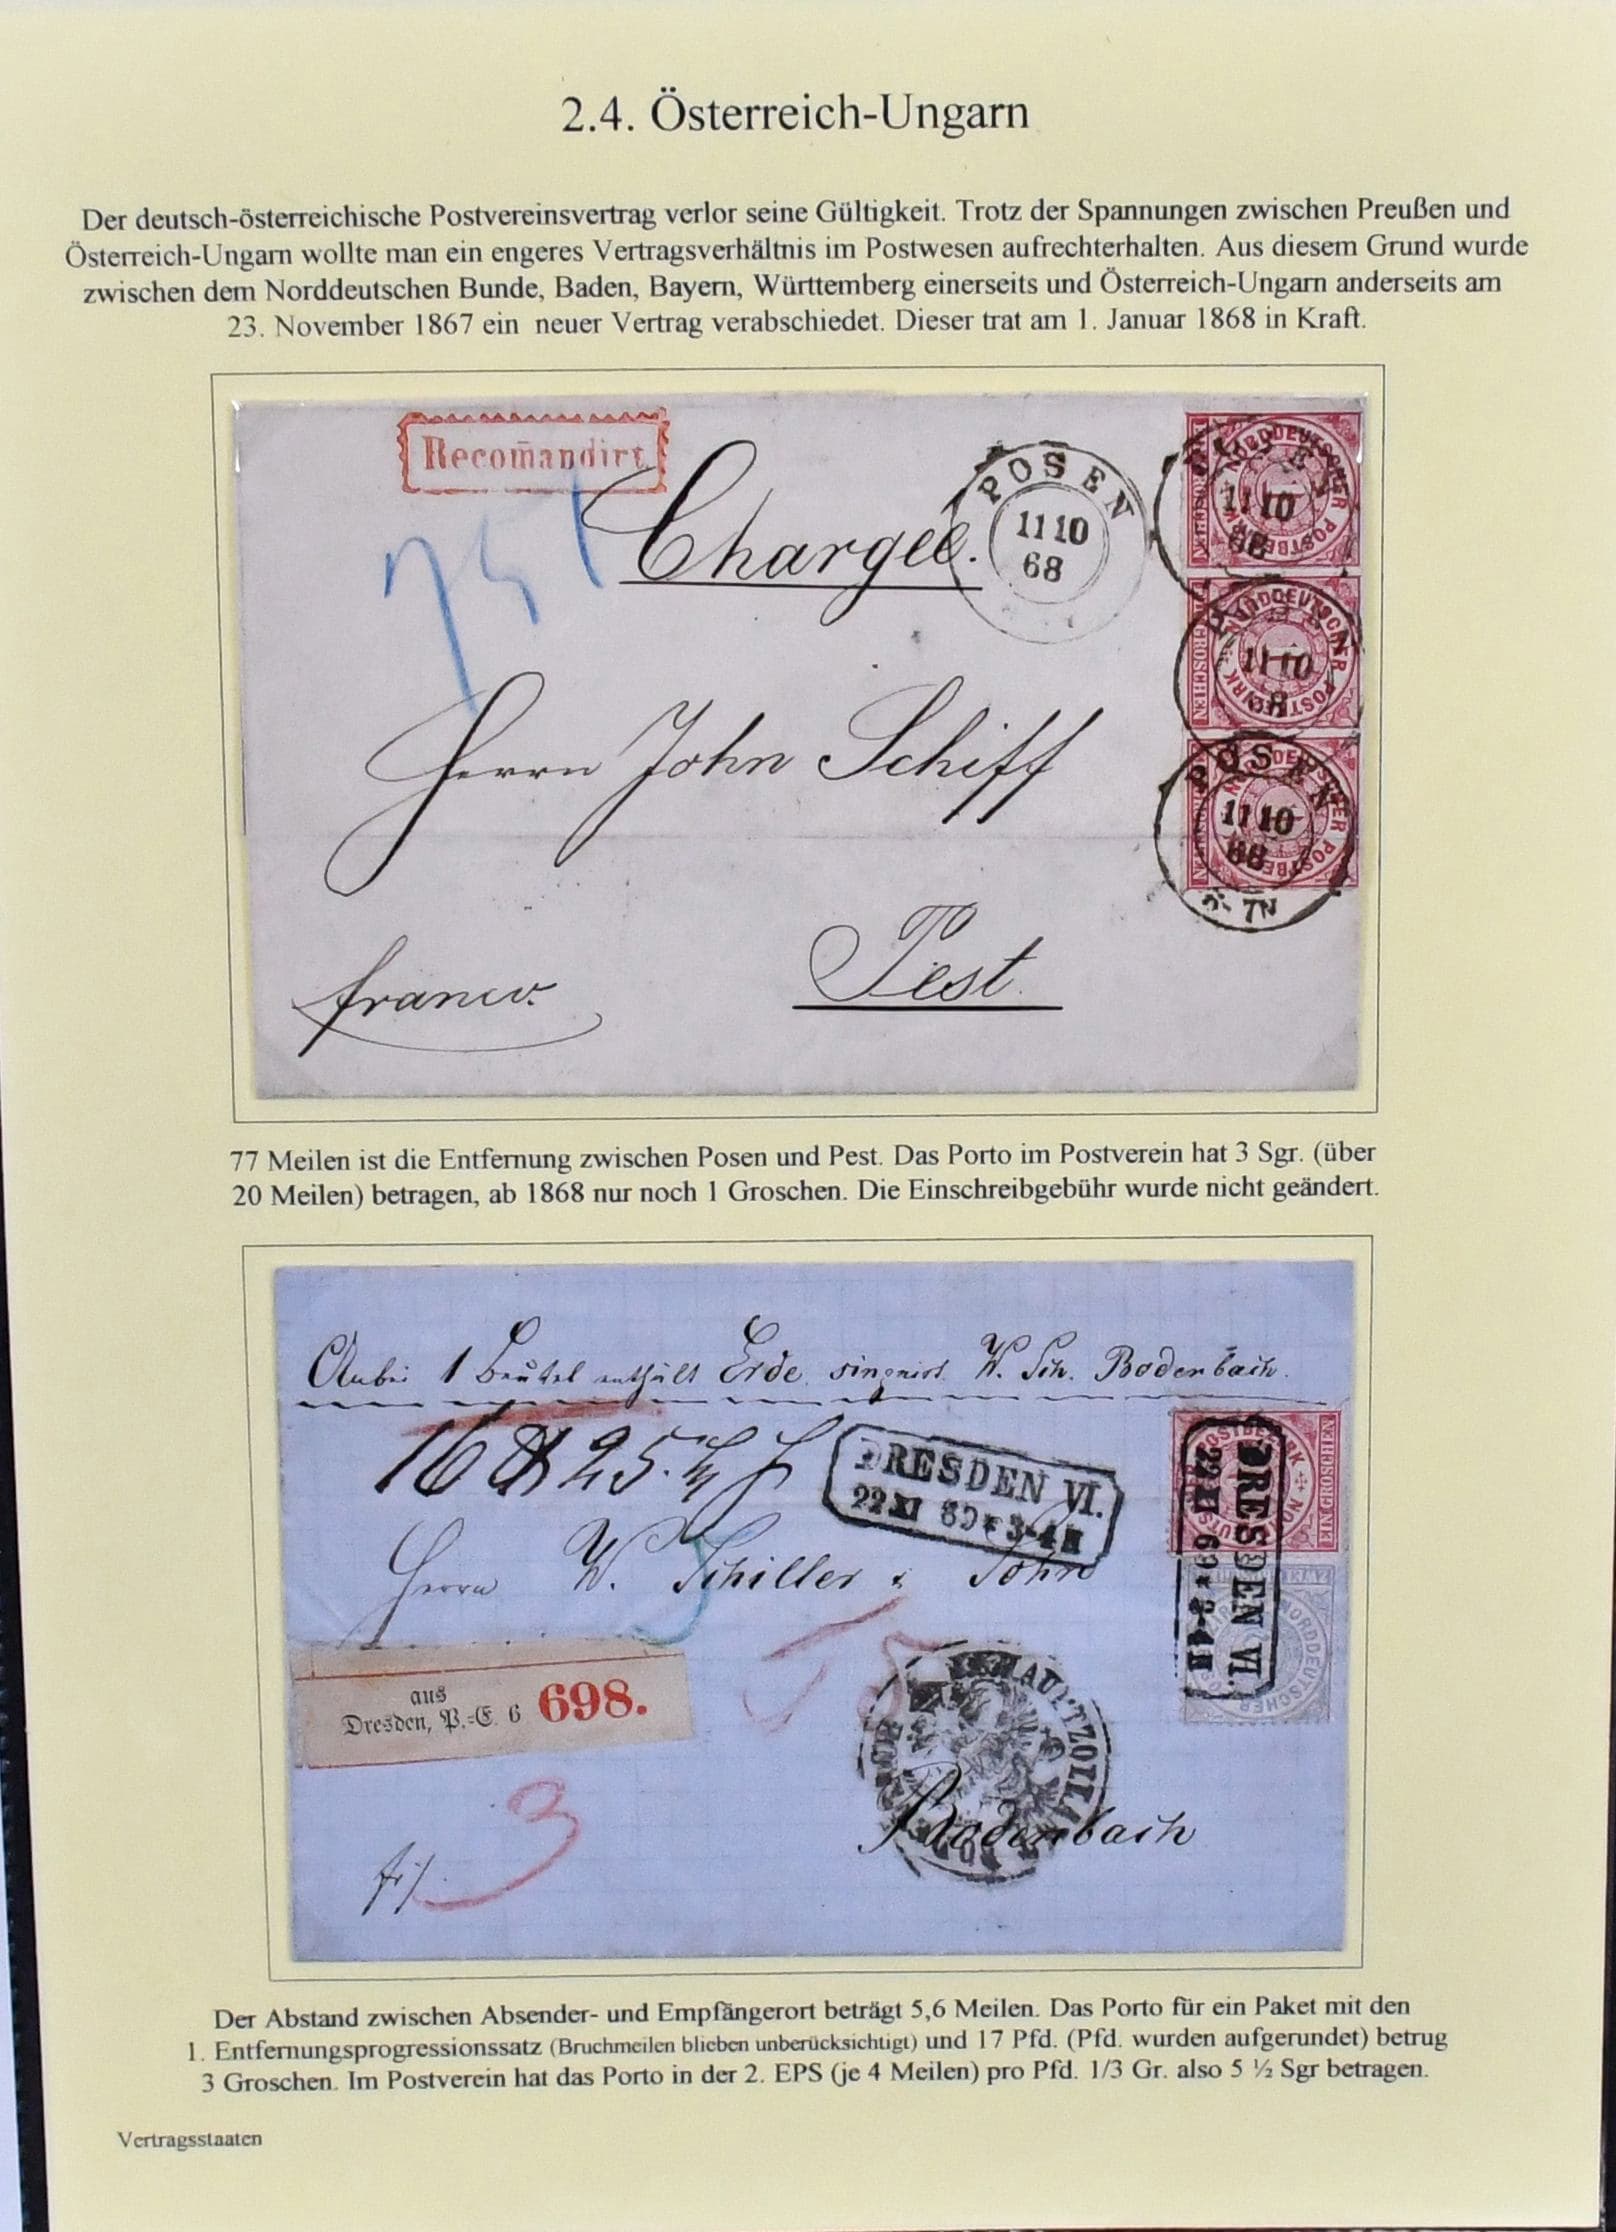 2.4. Österreich-Ungarn
Der deutsch-österreichische Postvereinsvertrag verlor seine Gültigkeit. Trotz der Spannungen zwischen Preußen und
Österreich-Ungarn wollte man ein engeres Vertragsverhältnis im Postwesen aufrechterhalten. Aus diesem Grund wurde
zwischen dem Norddeutschen Bunde, Baden, Bayern, Württemberg einerseits und Österreich-Ungarn anderseits am
23. November 1867 ein neuer Vertrag verabschiedet. Dieser trat am 1. Januar 1868 in Kraft.
Recom̄andirt
Chargée.
POSEN
11 10
68
NORDDEUTSCHER POSTBEZIRK
11 10
68
NORDDEUTSCHER POSTBEZIRK
EIN GROSCHEN
11 10
8
POSEN
11 10
68
7N
Herrn John Schiff
Pest.
franco.
77 Meilen ist die Entfernung zwischen Posen und Pest. Das Porto im Postverein hat 3 Sgr. (über
20 Meilen) betragen, ab 1868 nur noch 1 Groschen. Die Einschreibgebühr wurde nicht geändert.
Anbei 1 Beutel enthält Erde signirt W. Sch. Bodenbach.
16 25
DRESDEN VI.
22 XI 69 * 3-4 N
DRESDEN VI.
22 XI 69 * 3-4 N
EIN GROSCHEN
NORDDEUTSCHER
Herrn W. Schiller & Sohn
aus
Dresden, P.-E. 6 698.
Bodenbach
fr/
3
Der Abstand zwischen Absender- und Empfängerort beträgt 5,6 Meilen. Das Porto für ein Paket mit den
1. Entfernungsprogressionssatz (Bruchmeilen blieben unberücksichtigt) und 17 Pfd. (Pfd. wurden aufgerundet) betrug
3 Groschen. Im Postverein hat das Porto in der 2. EPS (je 4 Meilen) pro Pfd. 1/3 Gr. also 5 ½ Sgr betragen.
Vertragsstaaten